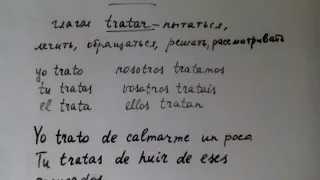 глагол tratar - пытаться,
лечить, обращаться, решать, рассматривать
yo trato nosotros tratamos
tu tratas vosotros tratais
el trata ellos tratan
Yo trato de calmarme un poco.
Tu tratas de huir de eses
recuerdos